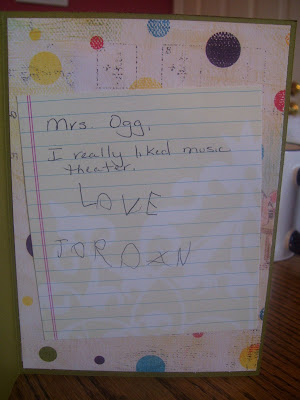 Mrs. Ogg,
I really liked music
theater.
LOVE
JORDAN